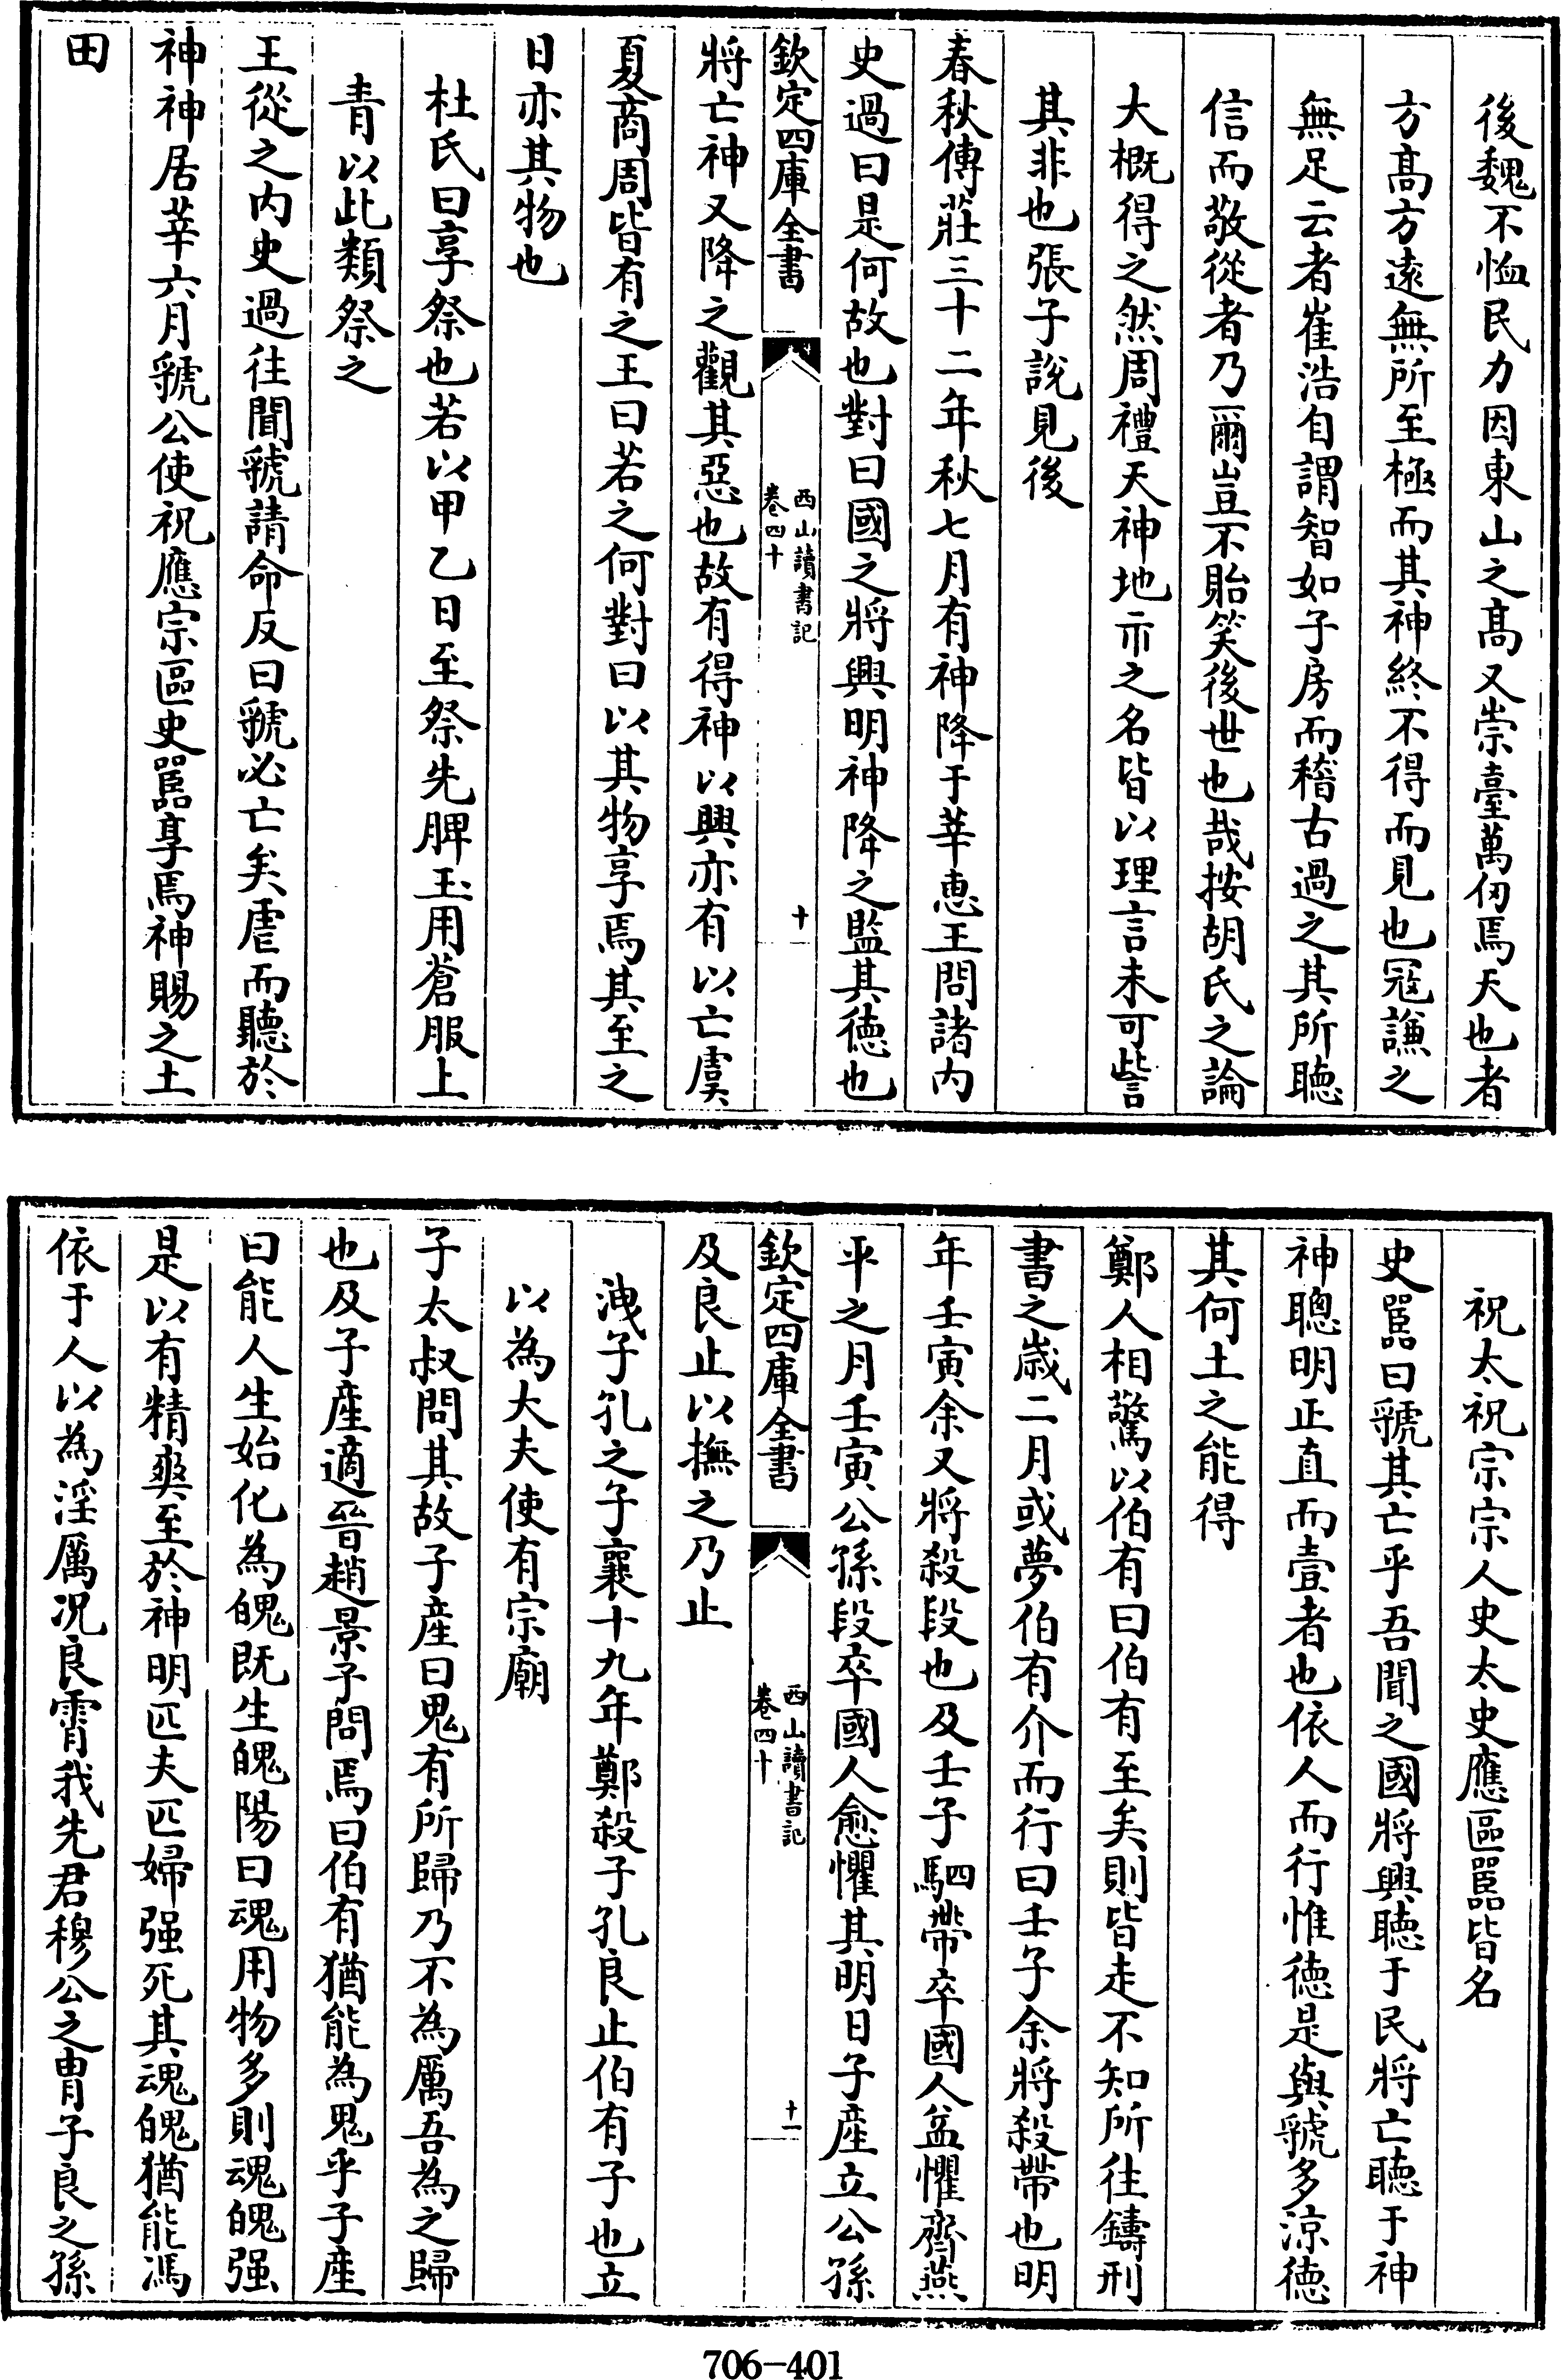 後魏不恤民力因東山之髙又崇臺萬仞焉天也者
方髙方逺無所至極而其神終不得而見也冦謙之
無足云者崔浩自謂智如子房而稽古過之其所聽
信而敬從者乃爾豈不貽笑後世也哉按胡氏之論
大概得之然周禮天神地示之名皆以理言未可訾
其非也張子說見後
春秋傳莊三十二年秋七月有神降于莘惠王問諸内
史過曰是何故也對曰國之將興明神降之監其徳也
欽定四庫全書
西山讀書記
卷四十
十
將亡神又降之觀其惡也故有得神以興亦有以亡虞
夏商周皆有之王曰若之何對曰以其物享焉其至之
日亦其物也
杜氏曰享祭也若以甲乙日至祭先脾玉用蒼服上
青以此類祭之
王從之内史過往聞虢請命反曰虢必亡矣虐而聽於
神神居莘六月虢公使祝應宗區史嚚享焉神賜之土
田
祝太祝宗宗人史太史應區嚚皆名
史嚚曰虢其亡乎吾聞之國將興聽于民將亡聽于神
神聰明正直而壹者也依人而行惟徳是與虢多涼徳
其何土之能得
鄭人相驚以伯有曰伯有至矣則皆走不知所往鑄刑
書之歲二月或夢伯有介而行曰壬子余將殺帶也明
年壬寅余又將殺段也及壬子駟帶卒國人益懼齊燕
平之月壬寅公孫段卒國人愈懼其明日子產立公孫
欽定四庫全書
西山讀書記
卷四十
十一
及良止以撫之乃止
洩子孔之子襄十九年鄭殺子孔良止伯有子也立
以為大夫使有宗廟
子太叔問其故子產曰鬼有所歸乃不為厲吾為之歸
也及子產適晉趙景子問焉曰伯有猶能為鬼乎子產
曰能人生始化為魄既生魄陽曰魂用物多則魂魄强
是以有精爽至於神明匹夫匹婦强死其魂魄猶能馮
依于人以為淫厲况良霄我先君穆公之胄子良之孫
706-401